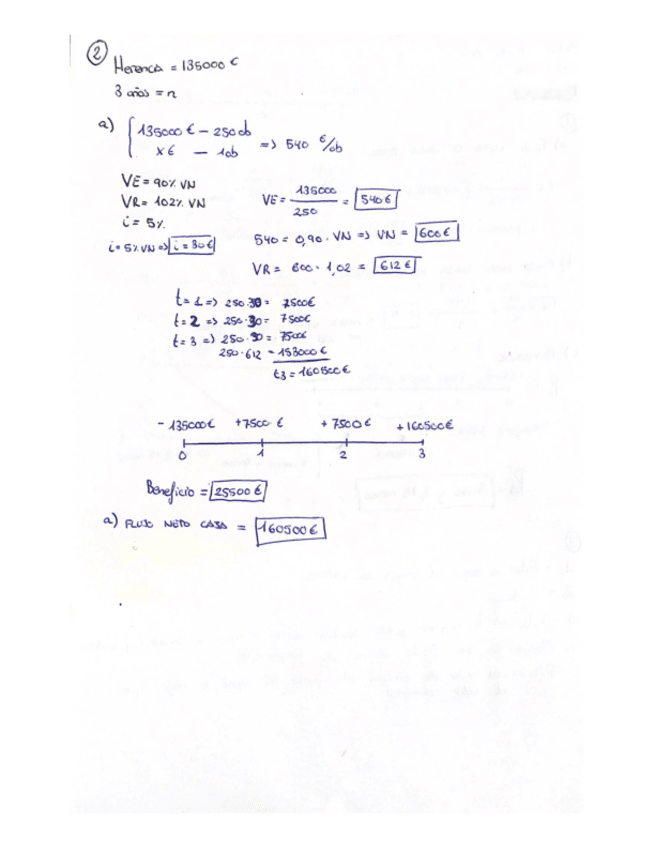 2
Herencia = 135000 €
3 años = n
a) { 135000 € – 250 ob
x € – 1 ob => 540 €/ob
VE = 90% VN
VR = 102% VN
i = 5%
i = 5% VN => i = 30 €
VE = 135000 / 250 = 540 €
540 = 0,90 · VN => VN = 600 €
VR = 600 · 1,02 = 612 €
t = 1 => 250 · 30 = 7500 €
t = 2 => 250 · 30 = 7500 €
t = 3 => 250 · 30 = 7500 €
250 · 612 = 153000 €
t3 = 160500 €
- 135000 € +7500 € +7500 € +160500 €
0 1 2 3
Beneficio = 25500 €
a) FLUJO NETO CAJA = 160500 €